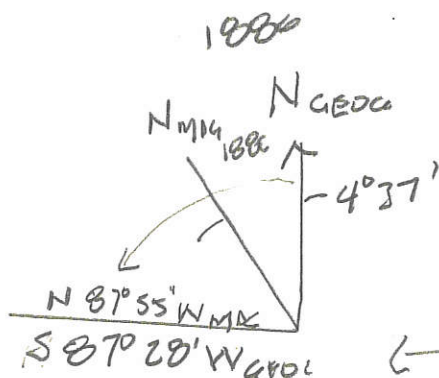 1886
N GEOG
N MAG 1886
4°37'
N 87°55' W MAG
S 87°28' W GEOG